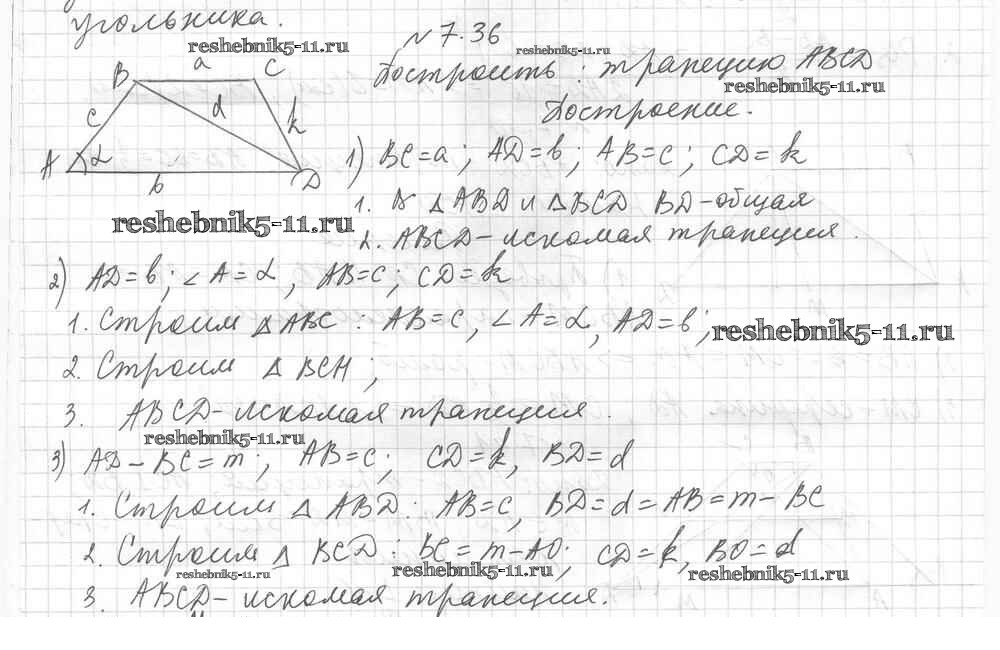 угольника.
reshebnik5-11.ru
№ 7.36
reshebnik5-11.ru
Построить : трапецию ABCD
reshebnik5-11.ru
Построение.
B a C
c d k
A α b D
1) BC=a; AD=b; AB=c; CD=k
1. ΔABD и ΔBCD BD-общая
reshebnik5-11.ru
2. ABCD-искомая трапеция.
2) AD=b; ∠A=α, AB=c; CD=k
1. Строим ΔABC : AB=c, ∠A=α, AD=b;
reshebnik5-11.ru
2. Строим Δ BCH;
3. ABCD-искомая трапеция.
reshebnik5-11.ru
3) AD-BC=m; AB=c; CD=k, BD=d
1. Строим Δ ABD: AB=c, BD=d=AB=m-BC
2. Строим Δ BCD: BC=m-AD; CD=k, BD=d
reshebnik5-11.ru reshebnik5-11.ru reshebnik5-11.ru
3. ABCD-искомая трапеция.